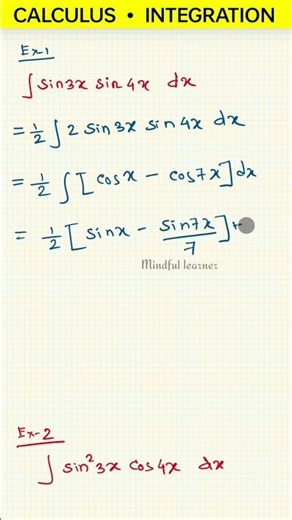 CALCULUS • INTEGRATION
Ex1
∫ sin3x sin4x dx
= 1/2 ∫ 2 sin3x sin4x dx
= 1/2 ∫ [cosx - cos7x] dx
= 1/2 [sinx - sin7x/7] +
Mindful learner
Ex-2
∫ sin²3x cos4x dx